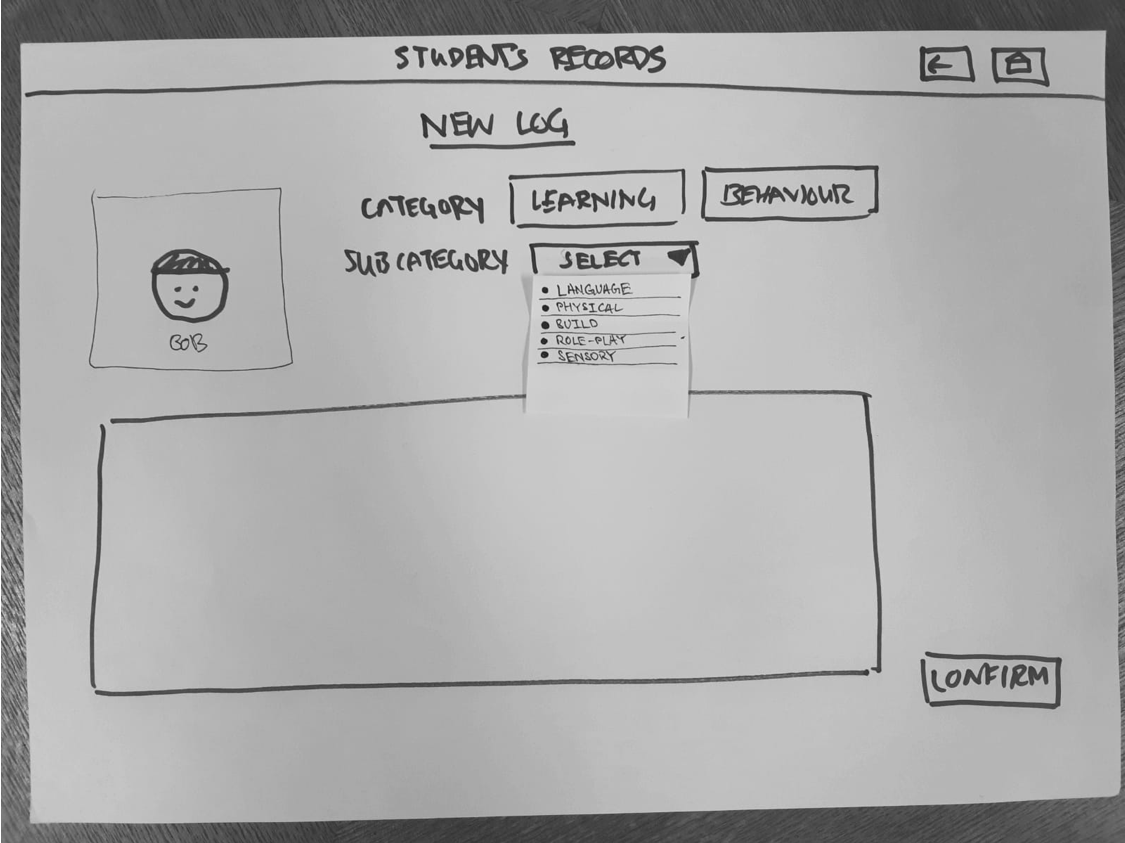 STUDENT'S RECORDS
NEW LOG
CATEGORY LEARNING BEHAVIOUR
SUBCATEGORY SELECT
LANGUAGE
PHYSICAL
BUILD
ROLE-PLAY
SENSORY
BOB
CONFIRM